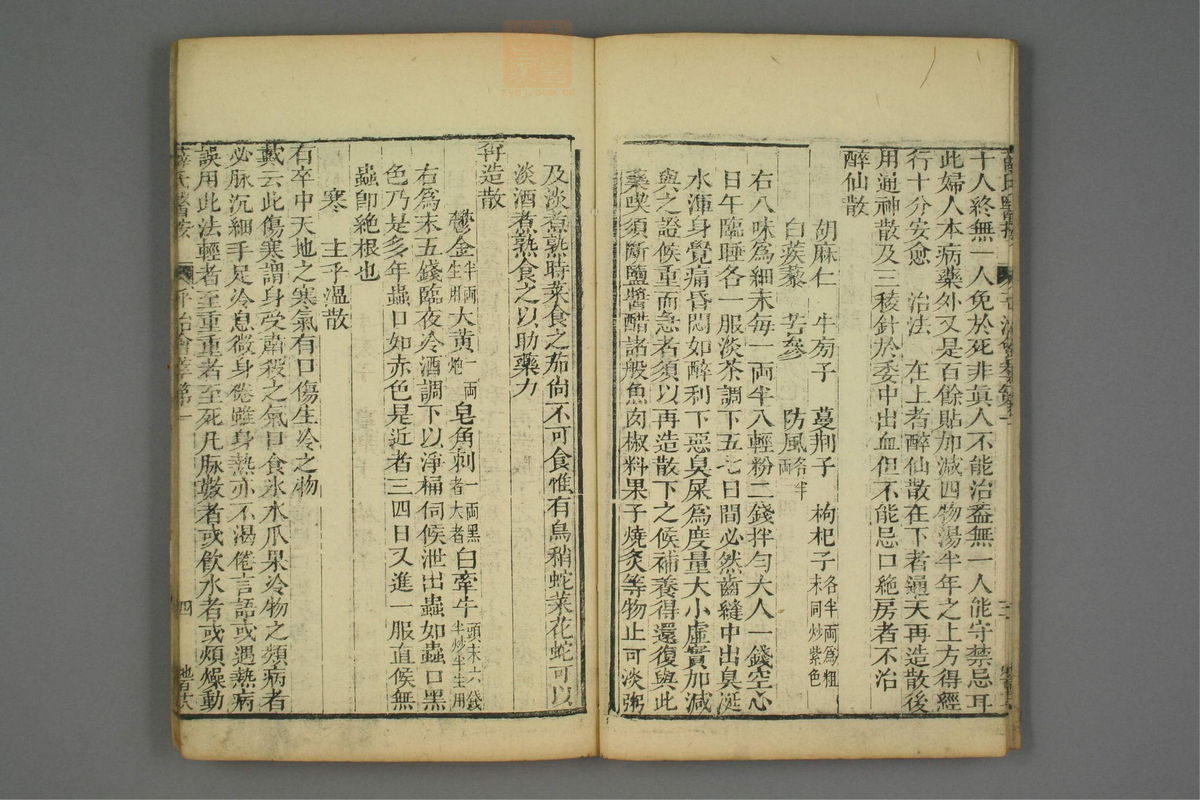 十人終無一人免於死非真人不能治葢無一人能守禁忌耳
此婦人本病藥外又是百餘貼加減四物湯半年之上方得經
行十分安愈　治法　在上者醉仙散在下者通天再造散後
用通神散及三稜針於委中出血但不能忌口絶房者不治
醉仙散
胡麻仁　牛蒡子　蔓荆子　枸杞子各半兩爲粗末同炒紫色
白蒺藜　苦參　防風各半兩
右八味爲細末每一兩半入輕粉二錢拌勻大人一錢空心
日午臨睡各一服淡茶調下五七日間必然齒縫中出臭涎
水渾身覺痛昏悶如醉利下惡臭屎爲度量大小虛實加減
與之證候重而急者須以再造散下之候補養得還復與此
藥喫須斷鹽醬醋諸般魚肉椒料果子燒炙等物止可淡粥
及淡煮熟時菜食之茄尙不可食惟有烏稍蛇菜花蛇可以
淡酒煮熟食之以助藥力
再造散
鬱金半兩生用大黄一兩炮皂角刺一兩黑者大者白牽牛頭末六錢半炒半生用
右爲末五錢臨夜冷酒調下以淨桶伺候泄出蟲如蟲口黑
色乃是多年蟲口如赤色是近者三四日又進一服直候無
蟲卽絶根也
寒　主乎溫散
右卒中天地之寒氣有口傷生冷之物
戴云此傷寒謂身受肅殺之氣口食氷水瓜果冷物之類病者
必脉沉細手足冷息微身倦雖身熱亦不渴倦言語或遇熱病
誤用此法輕者至重重者至死凡脉數者或飲水者或煩燥動
薛氏醫按
平治會萃卷一
四